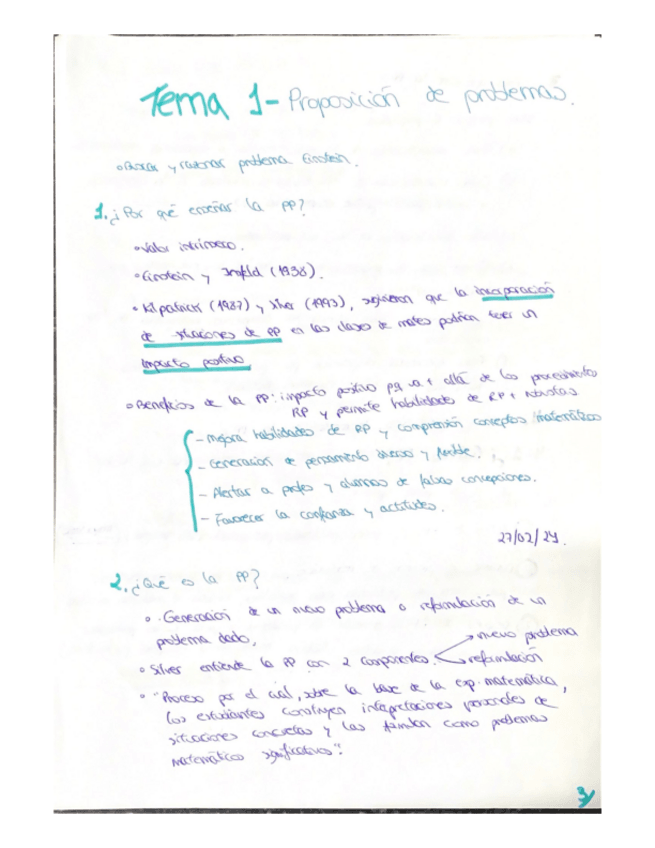 Tema 1- Proposición de problemas.
• Buscar y razonar problema Einstein.
1. ¿Por qué enseñar la PP?
• Valor intrínseco.
• Einstein y Infeld (1938).
• Kilpatrick (1987) y Silver (1993), sugirieron que la incorporación
de situaciones de PP en las clases de mates podrían tener un
impacto positivo
• Beneficios de la PP: impacto positivo pq va + allá de los procedimientos
RP y permite habilidades de RP + robustas
- mejora habilidades de RP y comprensión conceptos matemáticos
- Generación de pensamiento diverso y flexible.
- Alertar a profes y alumnos de falsas concepciones.
- Favorecer la confianza y actitudes.
27/02/24.
2. ¿Qué es la PP?
• Generación de un nuevo problema o reformulación de un
problema dado.
• Silver entiende la PP con 2 componentes. nuevo problema
reformulación
• "Proceso por el cual, sobre la base de la exp. matemática,
los estudiantes construyen interpretaciones personales de
situaciones concretas y las formulan como problemas
matemático significativos".
3